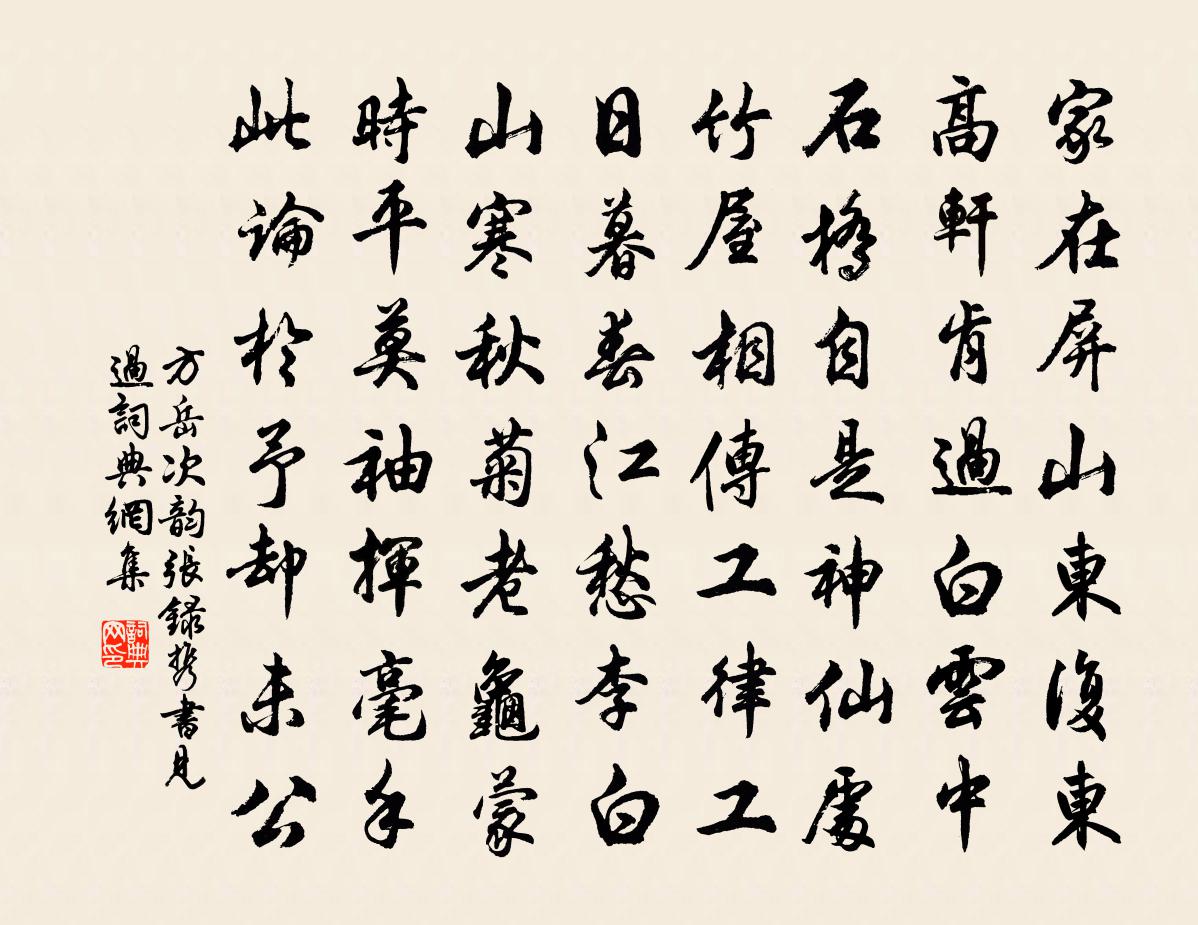 家在屏山東復東
高軒肯過白雲中
石橋自是神仙處
竹屋相傳工律工
日暮春江愁李白
山寒秋菊老龜蒙
時平莫袖揮毫手
此論於予却未公
方岳次韵張録携書見
過詞典網集
詞典网印